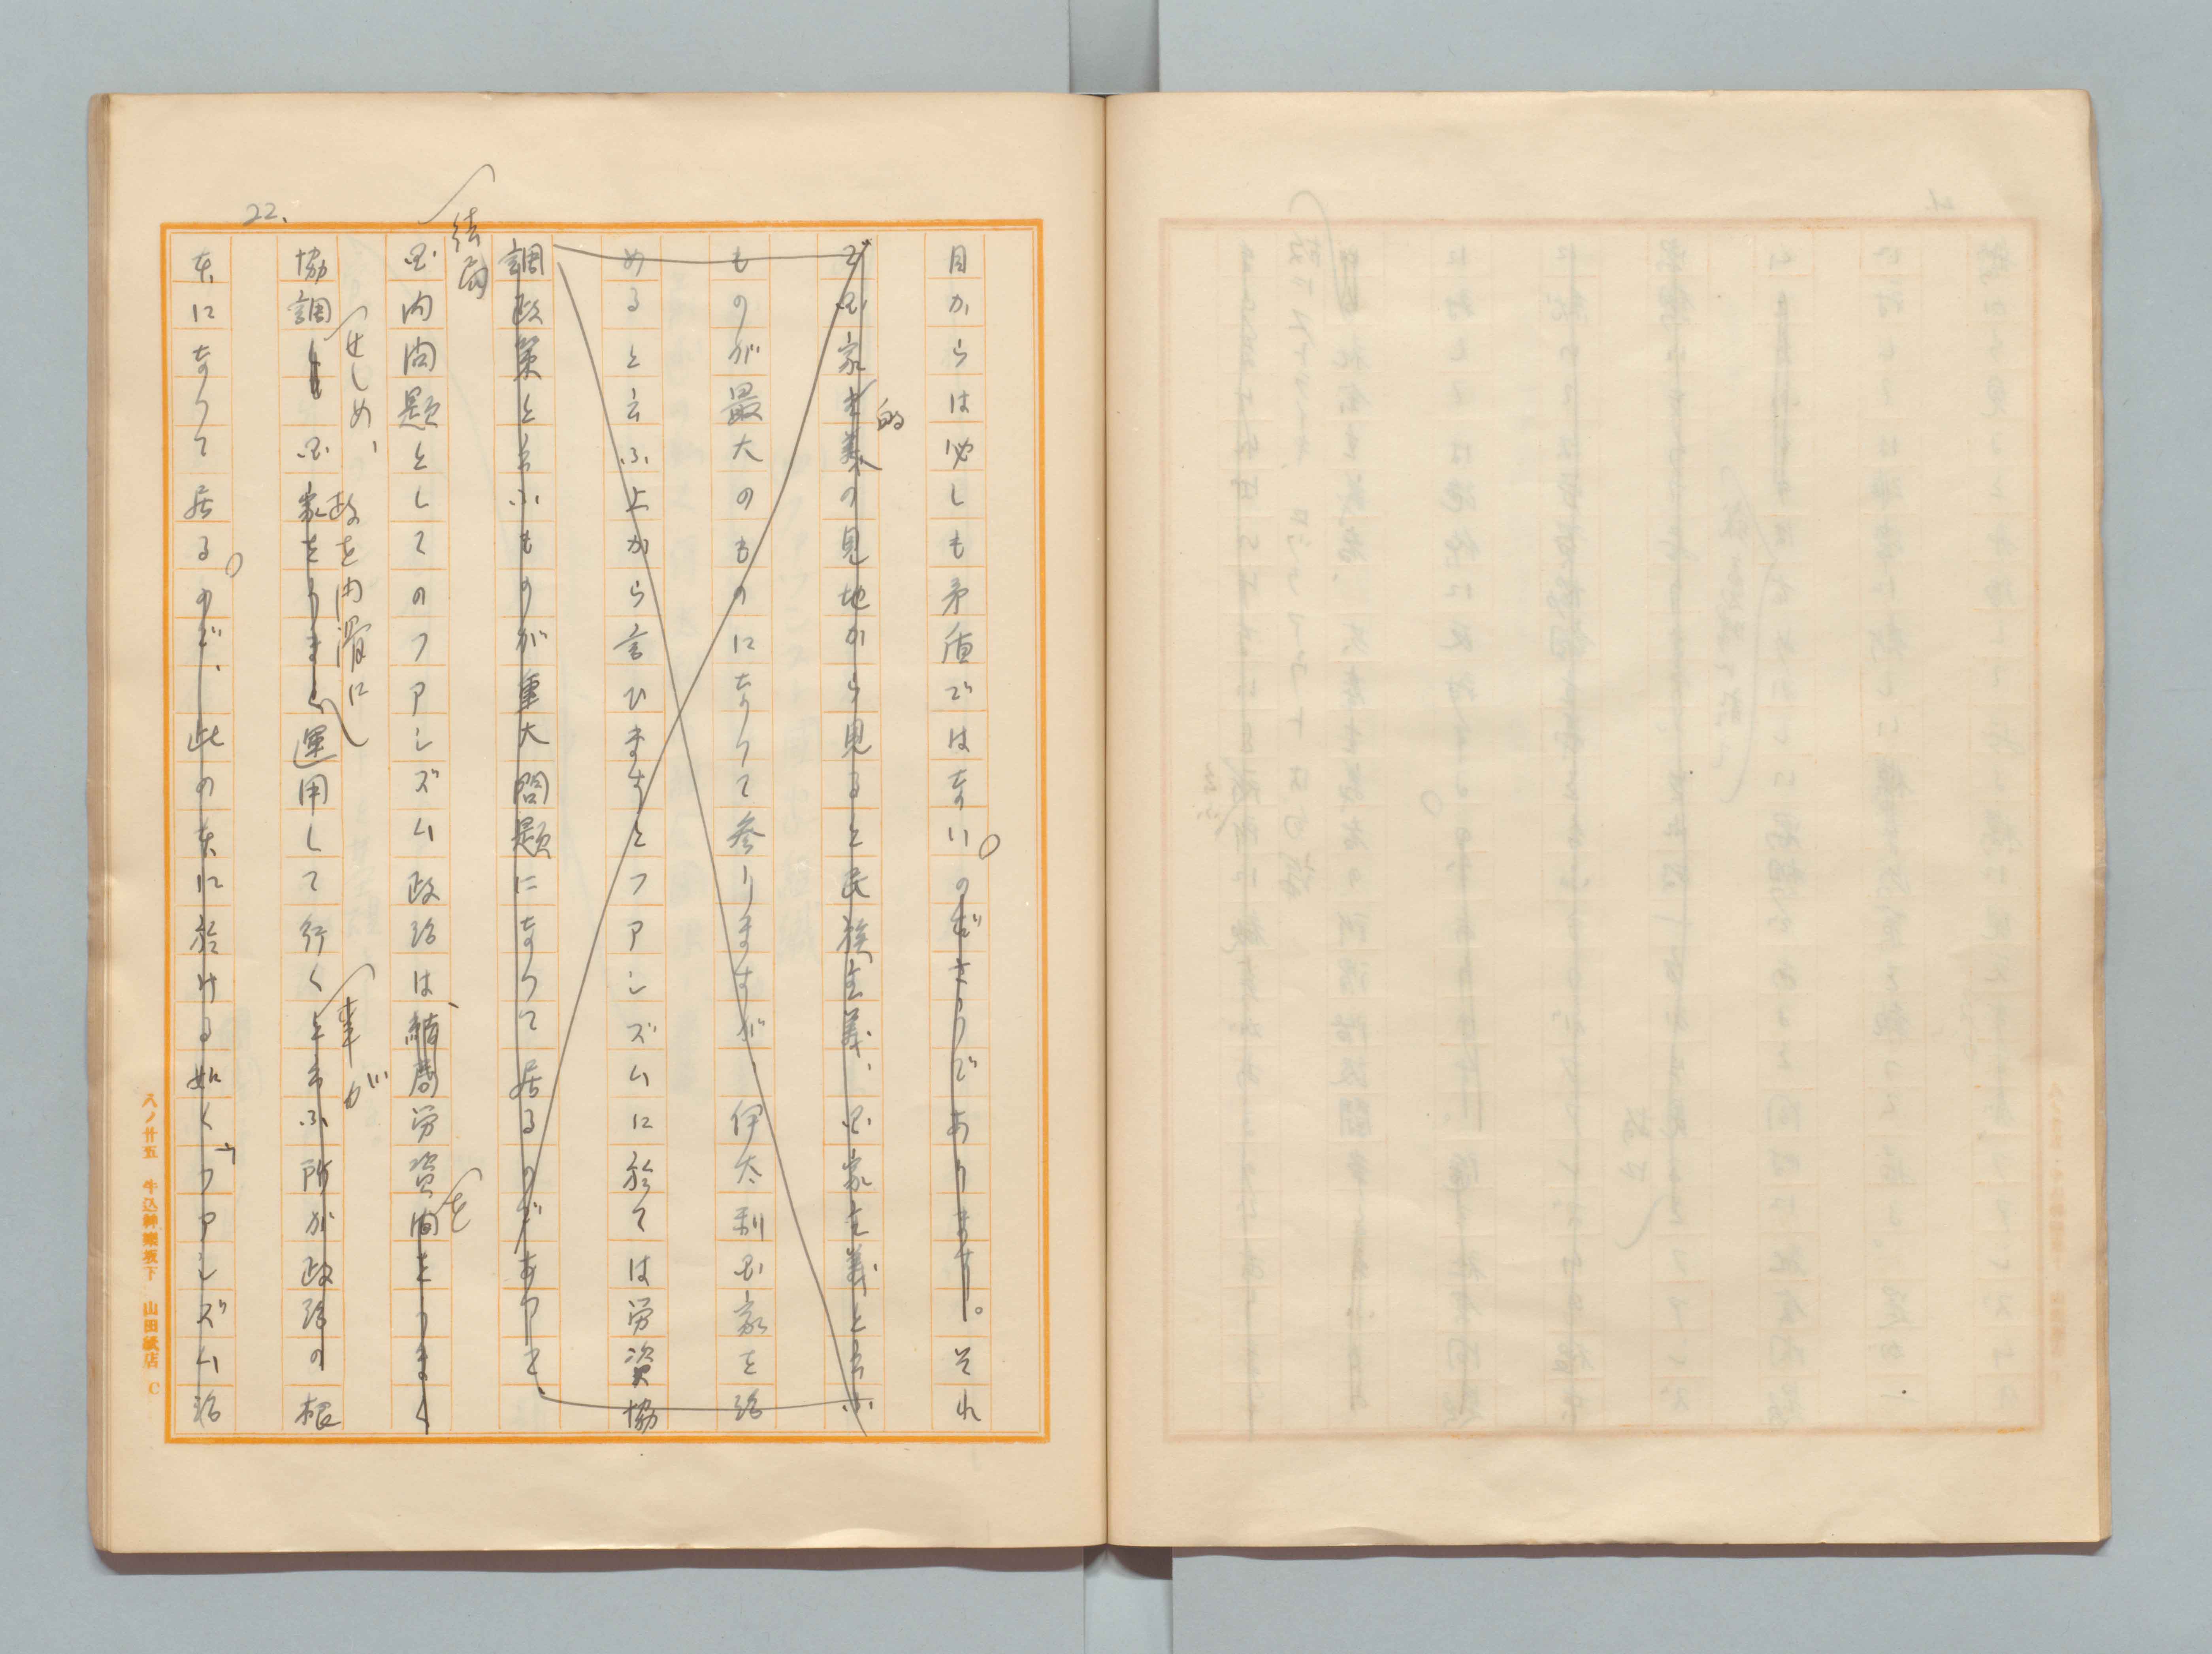 22.
目からは必しも矛盾ではない。のださうであります。それ
で国家主義の見地から見ると民族主義、国家主義と云ふ
的
ものが最大のものになつて参りますが、伊太利国家を治
めると云ふ上から言ひますとファシズムに於ては労資協
調政策と云ふものが重大問題になつて居るのであつて
結局
国内問題としてのファシズム政治は、結局労資間をうまく
を
協調し国家をうまく運用して行くと云ふ所が政治の根
せしめ、政を円滑に
事が
本になつて居る。ので、此の本に於ける如くファシズム治
八ノ廿五 牛込神楽坂下 山田紙店 C